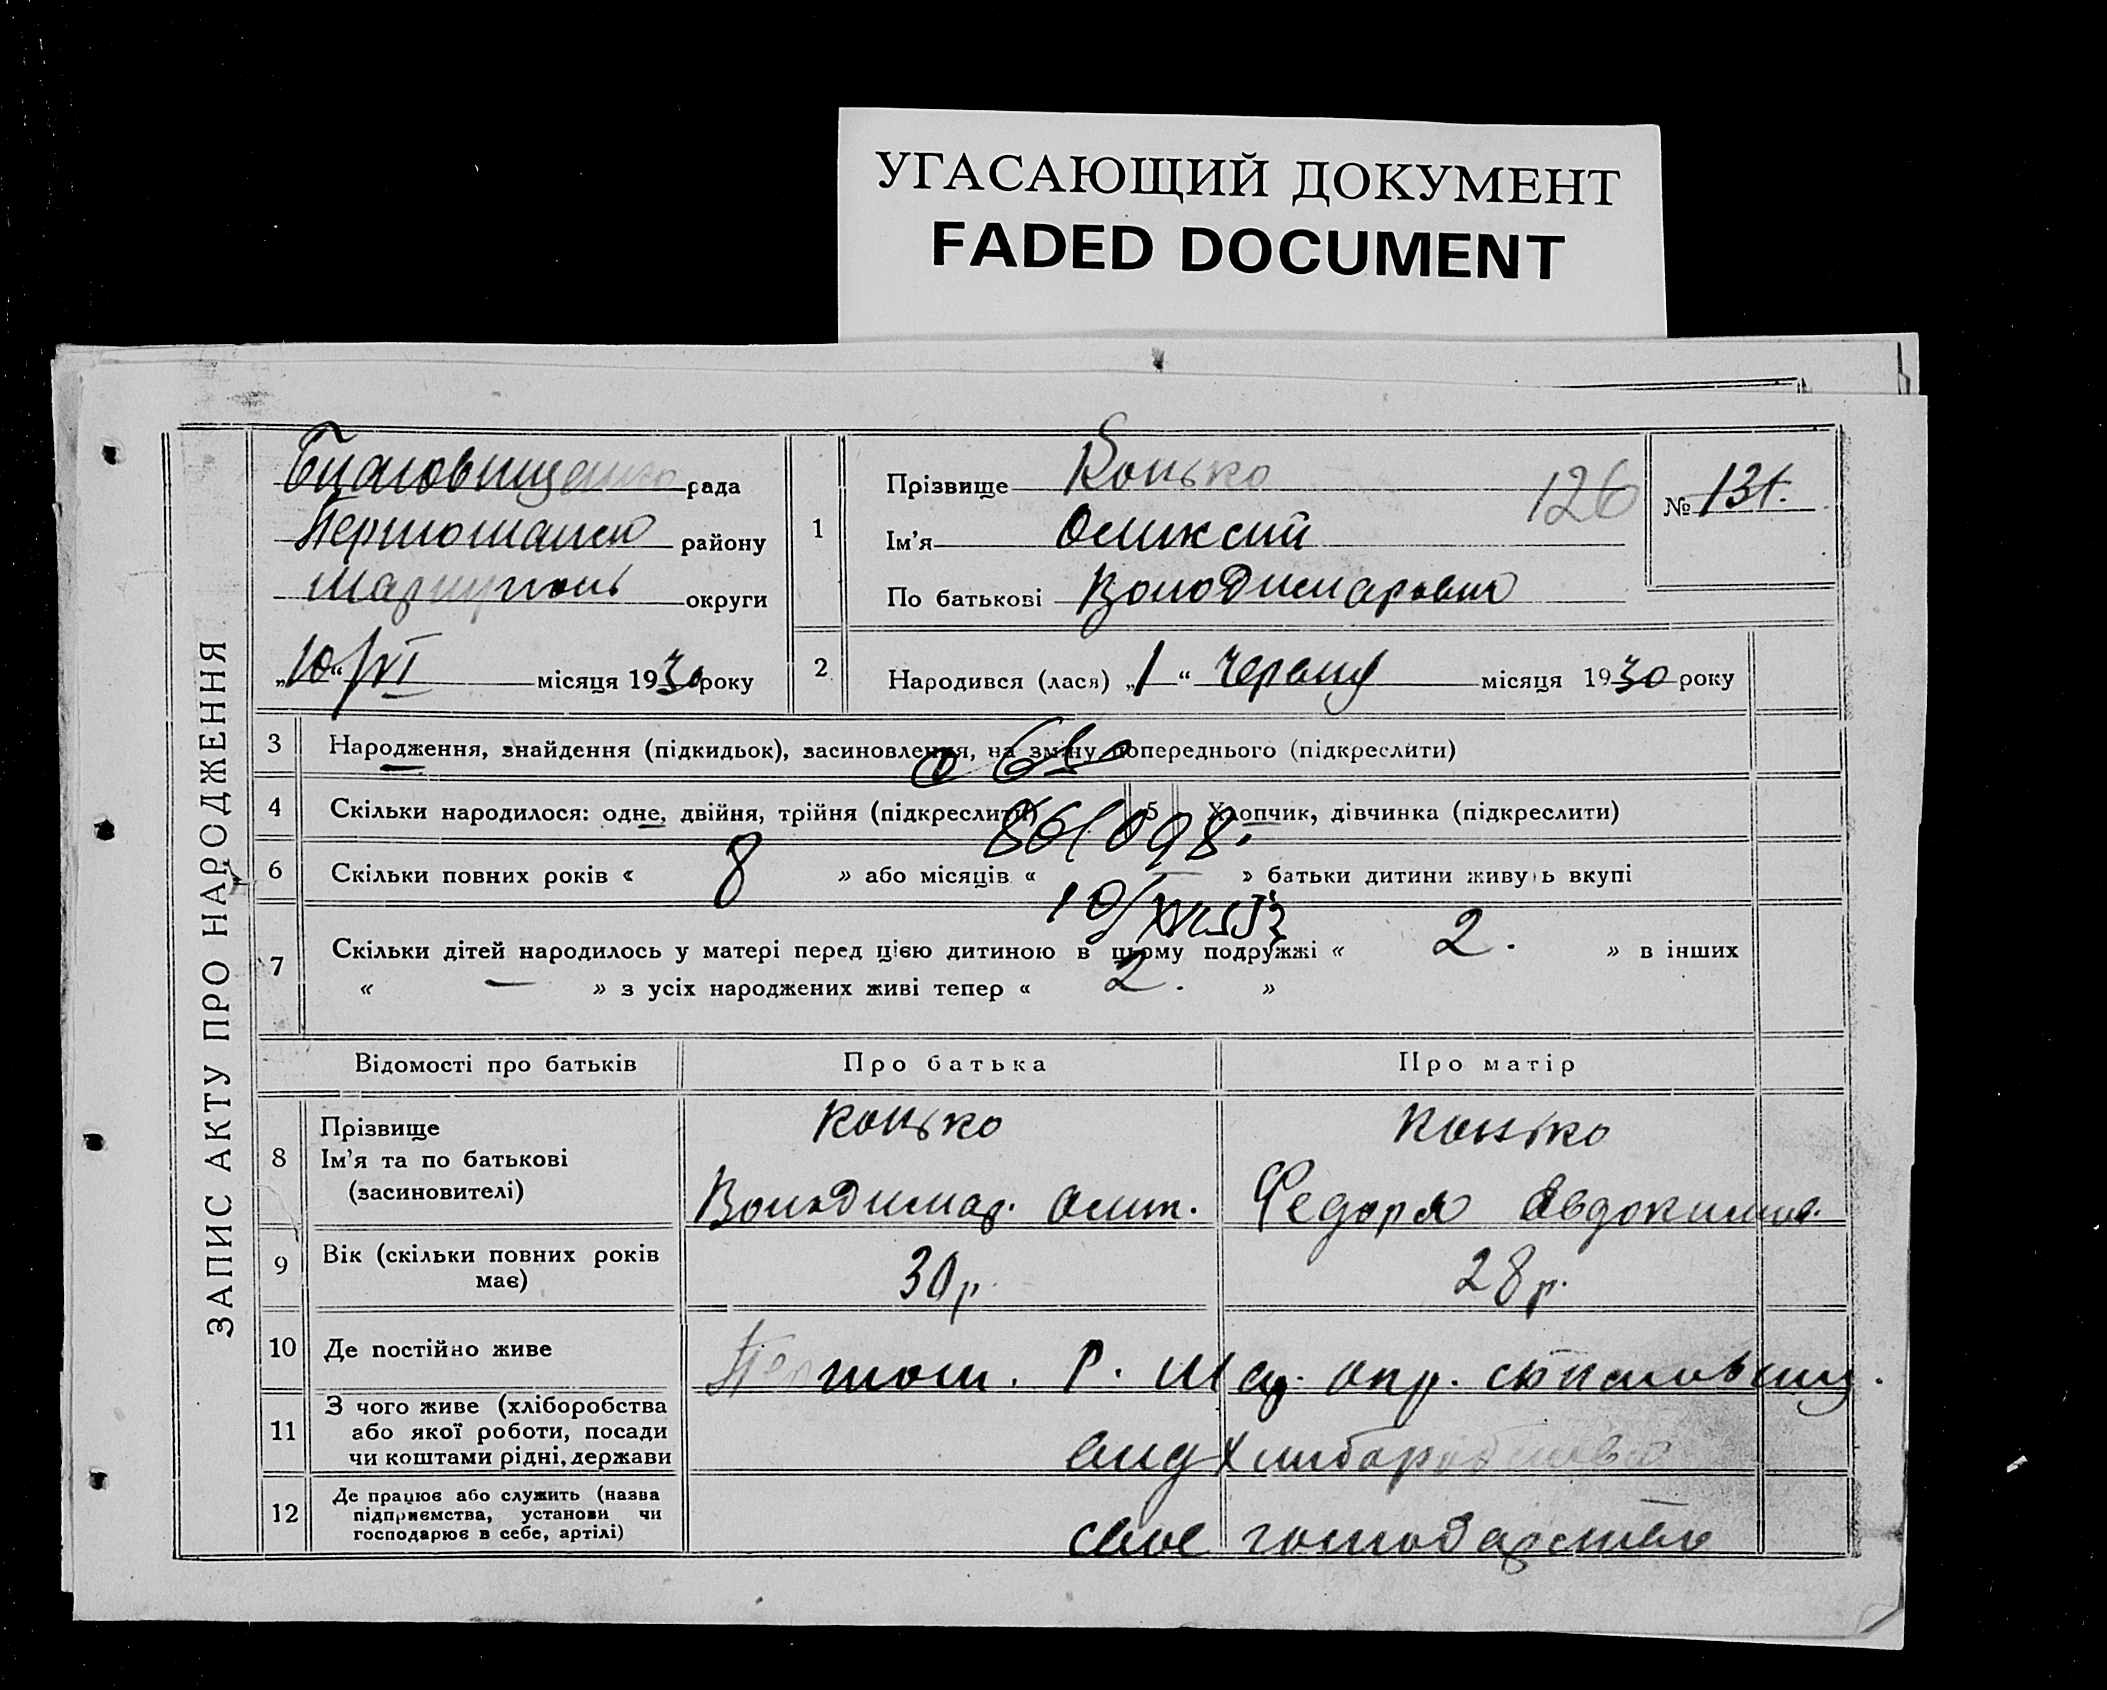 УГАСАЮЩИЙ ДОКУМЕНТ
FADED DOCUMENT
ЗАПИС АКТУ ПРО НАРОДЖЕННЯ
рада
району
округи
„10“ VI місяця 1930 року
1
Прізвище Конько
126
Ім'я Оликсий
По батькові
№ 131.
2
Народився (лася) „1“ червня місяця 1930 року
3
Народження, знайдення (підкидьок), засиновлення, на зміну попереднього (підкреслити)
4
Скільки народилося: одне, двійня, трійня (підкреслити)
5
Хлопчик, дівчинка (підкреслити)
861098.
6
Скільки повних років « 8 » або місяців « » батьки дитини живуть вкупі
7
Скільки дітей народилось у матері перед цією дитиною в цьому подружжі « 2. » в інших
« — » з усіх народжених живі тепер « 2. »
Відомості про батьків
Про батька
Про матір
8
Прізвище
Ім'я та по батькові
(засиновителі)
Конько
Володимар. Олит.
Конько
Федора Авдокимов.
9
Вік (скільки повних років
має)
30 р.
28 р.
10
Де постійно живе
11
З чого живе (хліборобства
або якої роботи, посади
чи коштами рідні, держави
12
Де працює або служить (назва
підприємства, установи чи
господарює в себе, артілі)
свое господарство